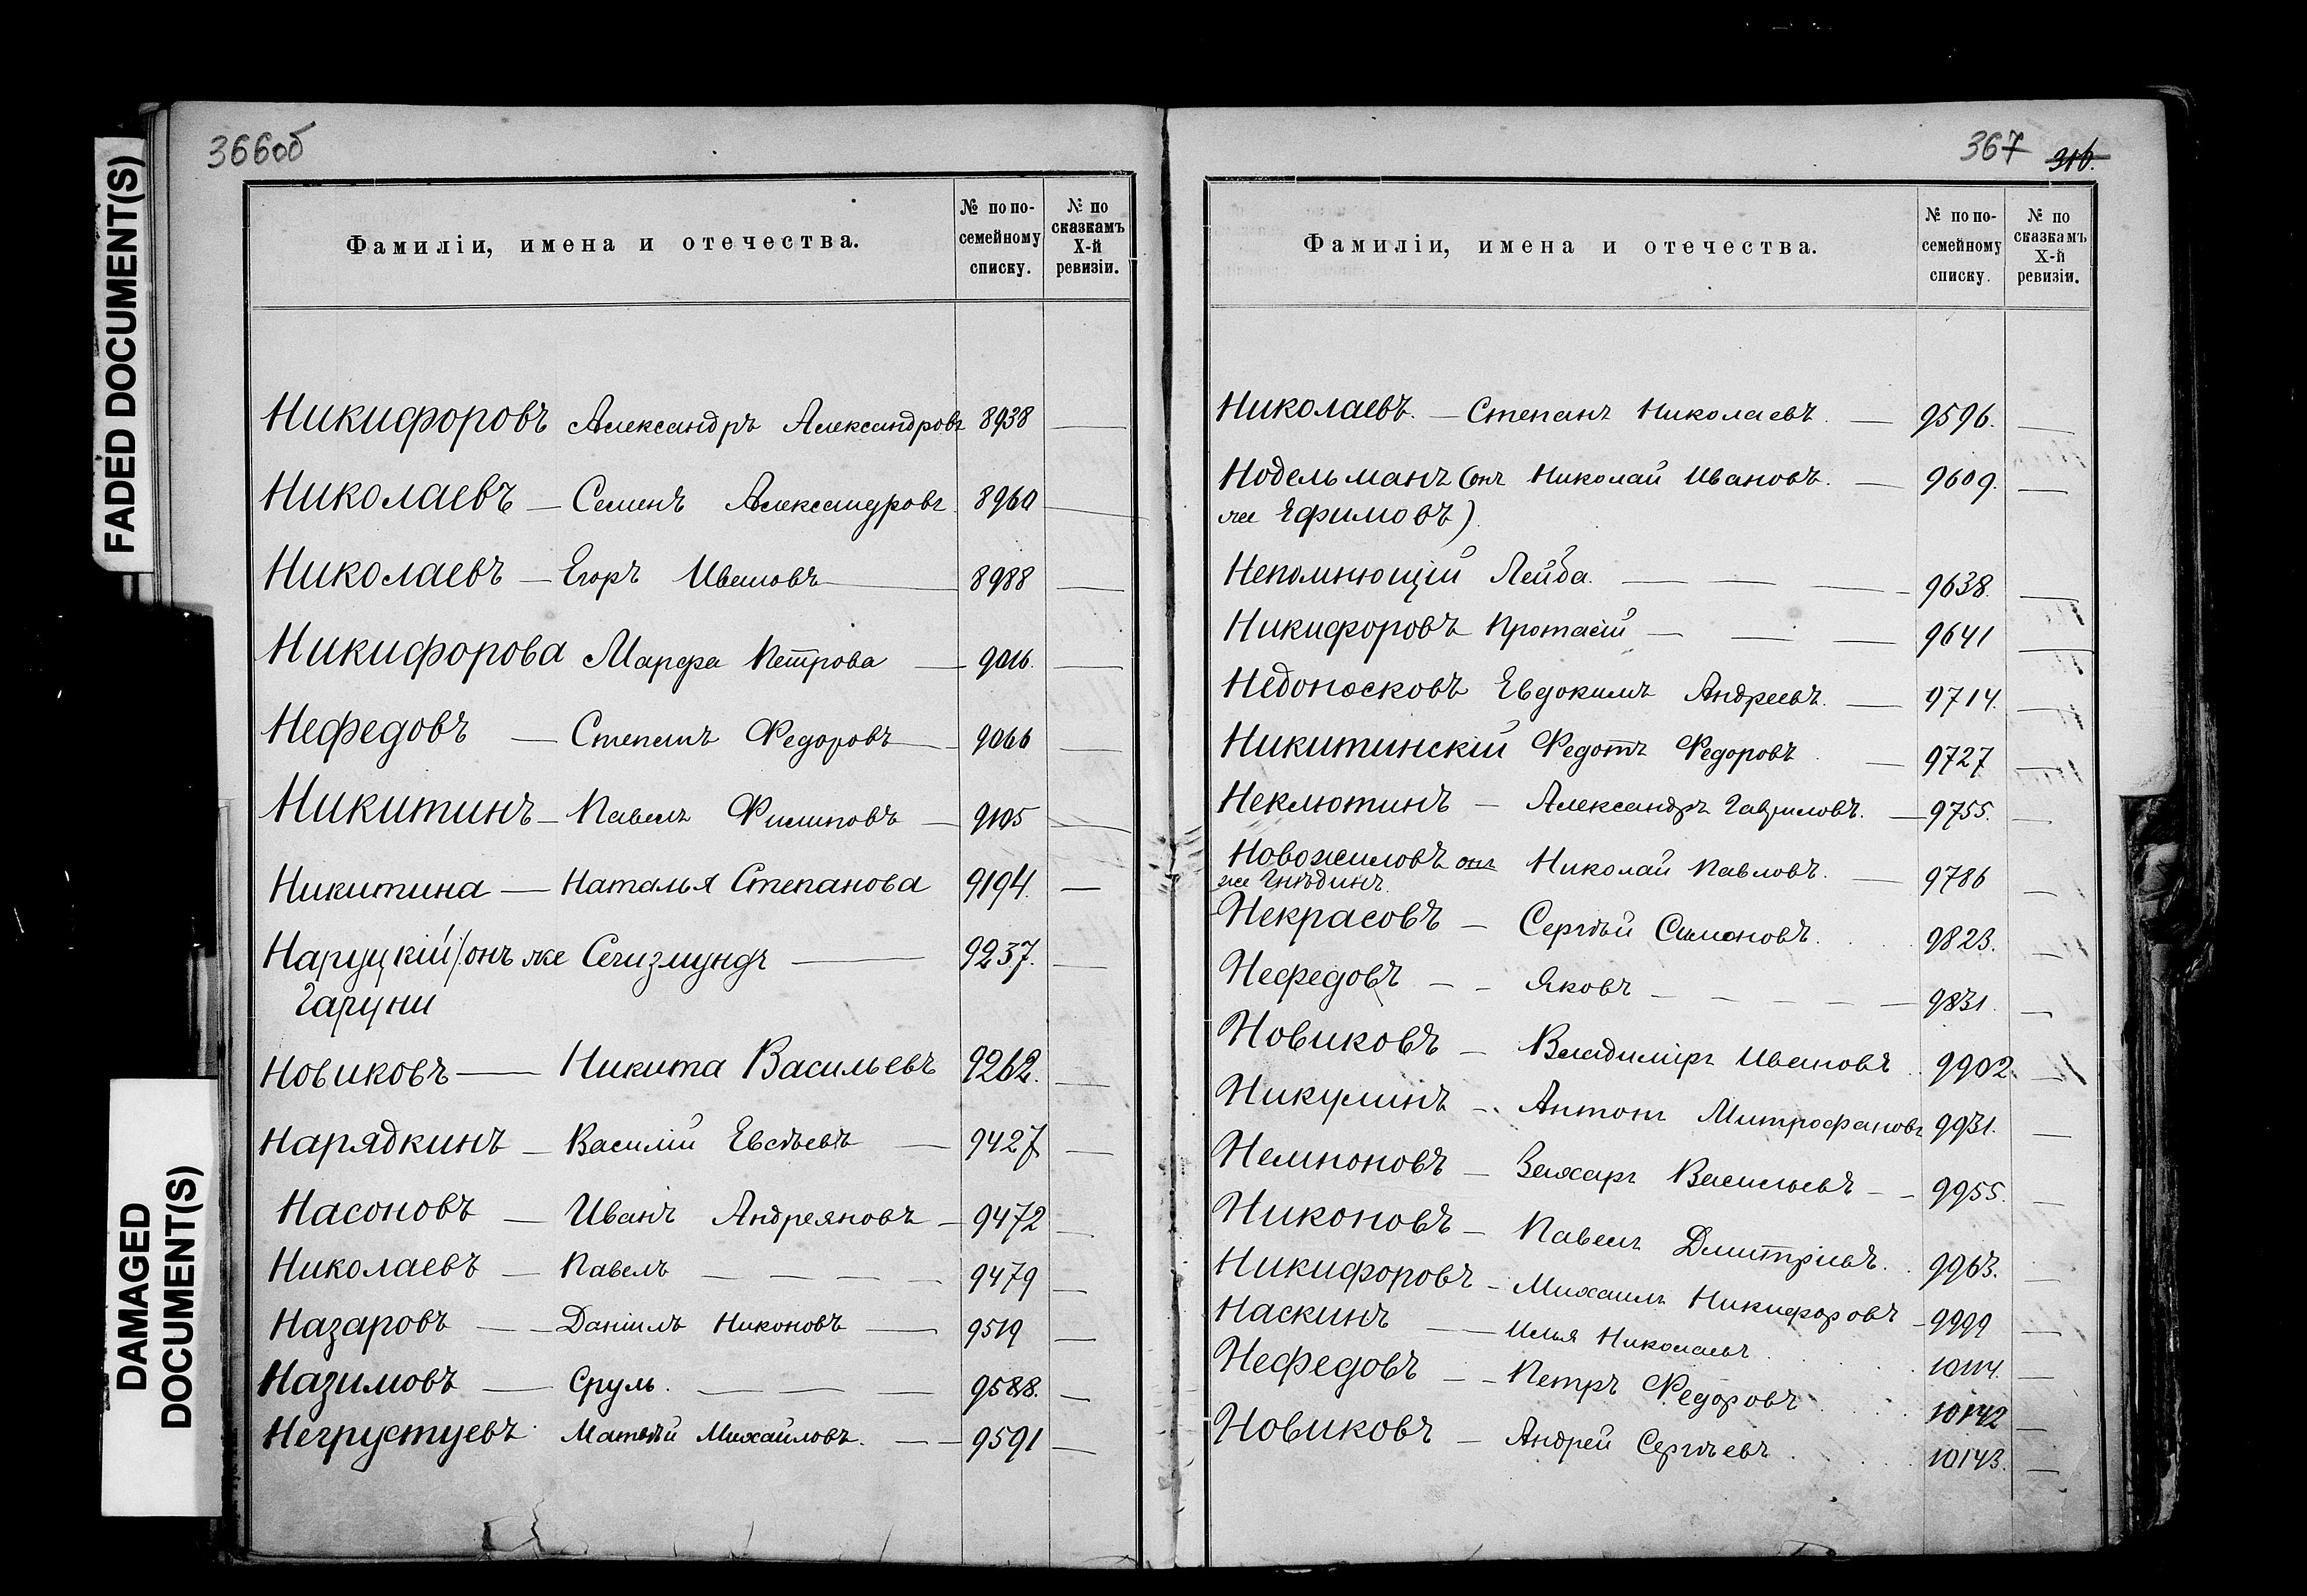 FADED DOCUMENT(S)
DAMAGED
DOCUMENT(S)
366об
Фамиліи, имена и отечества.
№ по по-
семейному
списку.
№ по
сказкамъ
X-й
ревизіи.
Никифоровъ Александръ Александровъ 8938 —
Николаевъ — Семенъ Александровъ 8960 —
Николаевъ — Егоръ Ивановъ — 8988 —
Никифорова Марфа Петрова — 9016. —
Нефедовъ — Степанъ Федоровъ — 9066 —
Никитинъ — Павелъ Филиповъ — 9105 —
Никитина — Наталья Степанова 9194. —
Наруцкій /онъ же Сигизмундъ — 9237. —
Гаруни
Новиковъ — Никита Васильевъ 9262. —
Нарядкинъ — Василій Евсѣевъ — 9427 —
Насоновъ — Иванъ Андреяновъ — 9472 —
Николаевъ — Павелъ — — — — 9479 —
Назаровъ — — Даніилъ Никоновъ — 9519 —
Назимовъ — Сруль. — — — 9588. —
Негрустуевъ Матвѣй Михайловъ. — — 9591 —
367 316.
Фамиліи, имена и отечества.
№ по по-
семейному
списку.
№ по
сказкамъ
X-й
ревизіи.
Николаевъ. — Степанъ Николаевъ. — 9596. —
Нодельманъ (онъ Николай Ивановъ. — 9609. —
же Ефимовъ)
Непомнющій Лейба. — — — 9638. —
Никифоровъ Протасій — — — 9641 —
Недоносковъ Евдокимъ Андреевъ. — 9714. —
Никитинскій Федотъ Федоровъ — 9727 —
Неклютинъ — Александръ Гавриловъ. — 9755. —
Новожиловъ онъ Николай Павловъ. — 9786 —
же Гнѣдинъ.
Некрасовъ — Сергѣй Симоновъ. 9823. —
Нефедовъ — — Яковъ — — — — — 9831. —
Новиковъ — Владиміръ Ивановъ 9902. —
Никулинъ — Антонъ Митрофановъ 9931. —
Немноновъ — Захаръ Васильевъ — — 9955. —
Никоновъ — Павелъ Дмитріевъ. 9963. —
Никифоровъ — Михаилъ Никифоровъ — 9999 —
Наскинъ — Илья Николаевъ 10114. —
Нефедовъ — — Петръ Федоровъ 10142 —
Новиковъ — Андрей Сергѣевъ 10143. —